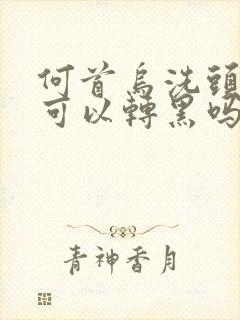 何首烏洗頭
可以轉黑吗
青神香月